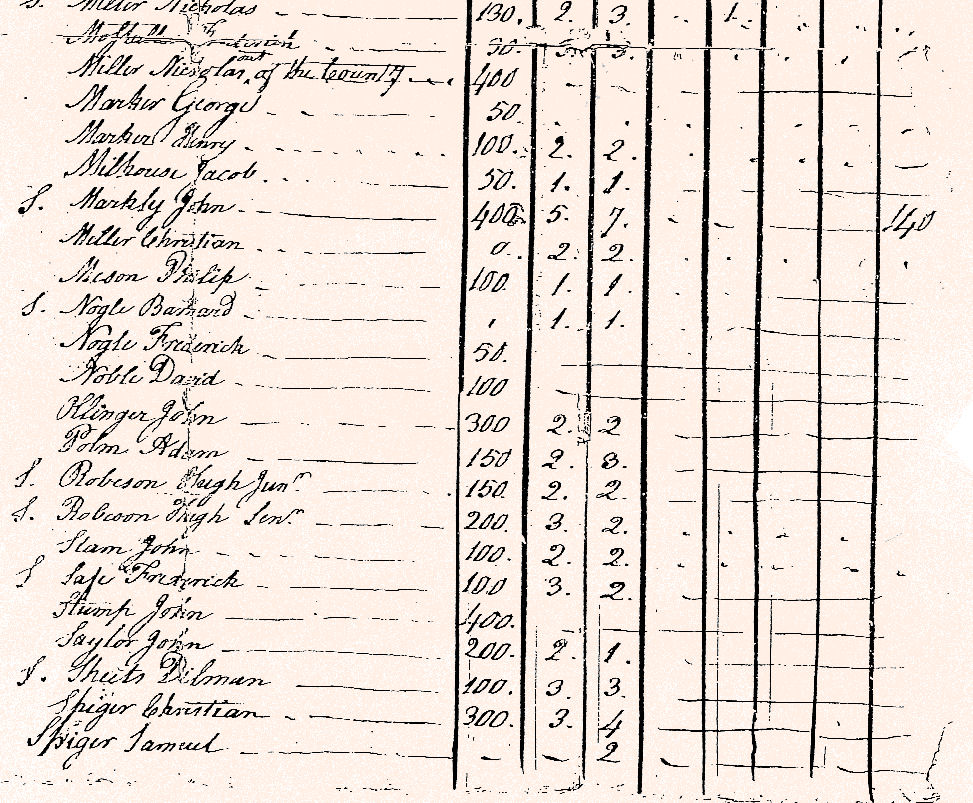 S. Meler Nicholas 130. 2. 3. 1.
50. 3. 3.
Miller Nicholas out of the County 400
Marker George 50
Marker Henry 100. 2. 2.
Milhouse Jacob 50. 1. 1.
S. Markly John 400 5. 7. 140
Miller Christian 0. 2. 2.
Meson Philip 100 1. 1.
S. Nogle Barnard 1. 1.
Nogle Frederick 50.
Noble David 100
Ollinger John 300 2. 2
Polm Adam 150 2. 3.
S. Robeson Hugh Junr 150. 2. 2.
S. Robeson Hugh Senr 200. 3. 2.
Stam John 100. 2. 2.
S Safe Frederick 100 3. 2.
Stump John 400.
Saylor John 200. 2. 1.
S. Sheets Dilman 100. 3. 3.
Spiger Christian 300. 3. 4
Spiger Samuel - - 2